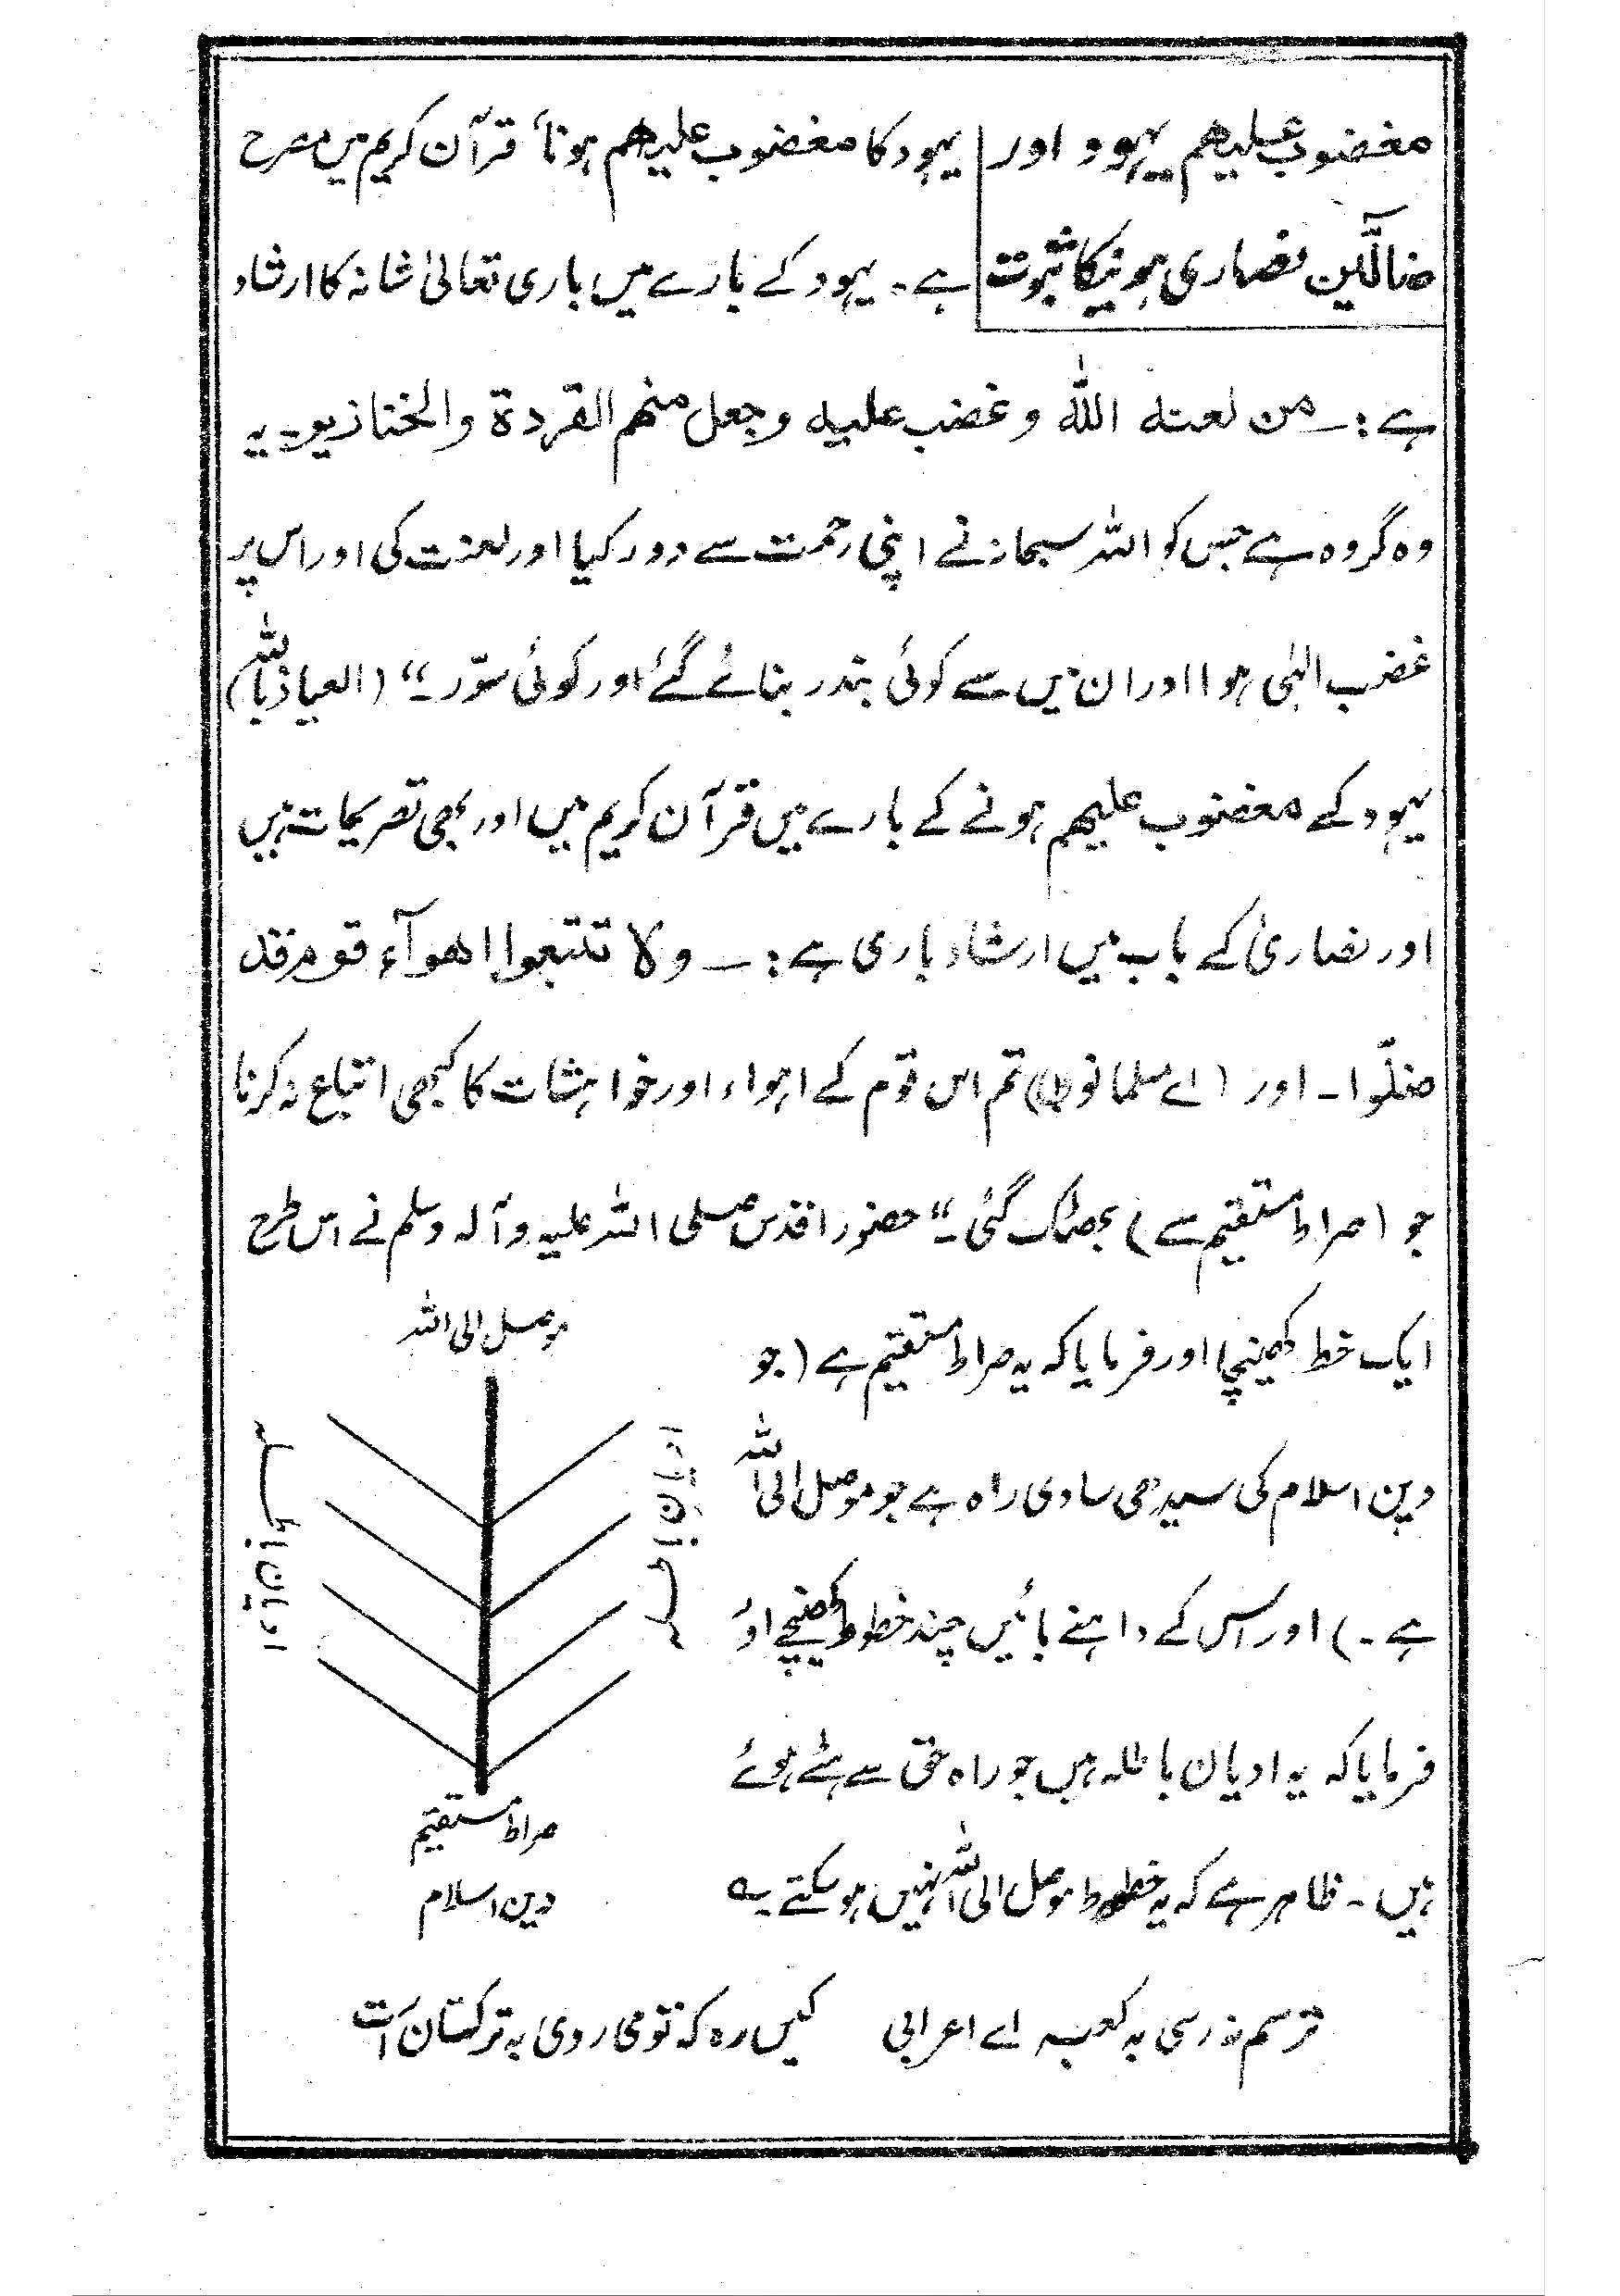 مغضوب علیھم یہود اور
ضالّین نصاری ہونیکا ثبوت
یہود کا مغضوب علیھم ہونا قرآن کریم میں مصرح
ہے۔ یہود کے بارے میں باری تعالیٰ شانہ کا ارشاد
ہے:۔ من لعنہ اللہ وغضب علیہ وجعل منھم القردۃ والخنازیر۔ یہ
وہ گروہ ہے جس کو اللہ سبحانہ نے اپنی رحمت سے دور کیا اور لعنت کی اور اس پر
غضب الٰہی ہوا اور ان میں سے کوئی بندر بنائے گئے اور کوئی سوّر۔“ (العیاذ باللہ)
یہود کے مغضوب علیھم ہونے کے بارے میں قرآن کریم میں اور بھی تصریحات ہیں
اور نصاریٰ کے باب میں ارشاد باری ہے:۔ ولا تتبعوا اھوآء قوم قد
ضلّوا۔ اور (اے مسلمانو!) تم اس قوم کے اہواء اور خواہشات کا کبھی اتباع نہ کرنا
جو (صراط مستقیم سے) بھٹک گئی۔“ حضور اقدس صلی اللہ علیہ وآلہ وسلم نے اس طرح
ایک خط کھینچا اور فرمایا کہ یہ صراط مستقیم ہے (جو
دین اسلام کی سیدھی سادی راہ ہے جو موصل الی اللہ
ہے۔) اور اس کے داہنے بائیں چند خطوط کھینچے اور
فرمایا کہ یہ ادیان باطلہ ہیں جو راہ حق سے ہٹے ہوئے
ہیں۔ ظاہر ہے کہ یہ خطوط موصل الی اللہ نہیں ہو سکتے یہ
موصل الی اللہ
ادیان باطلہ
ادیان باطلہ
صراط مستقیم
دین اسلام
ترسم نرسی بہ کعبہ اے اعرابی کیں رہ کہ تو می روی بہ ترکستان است